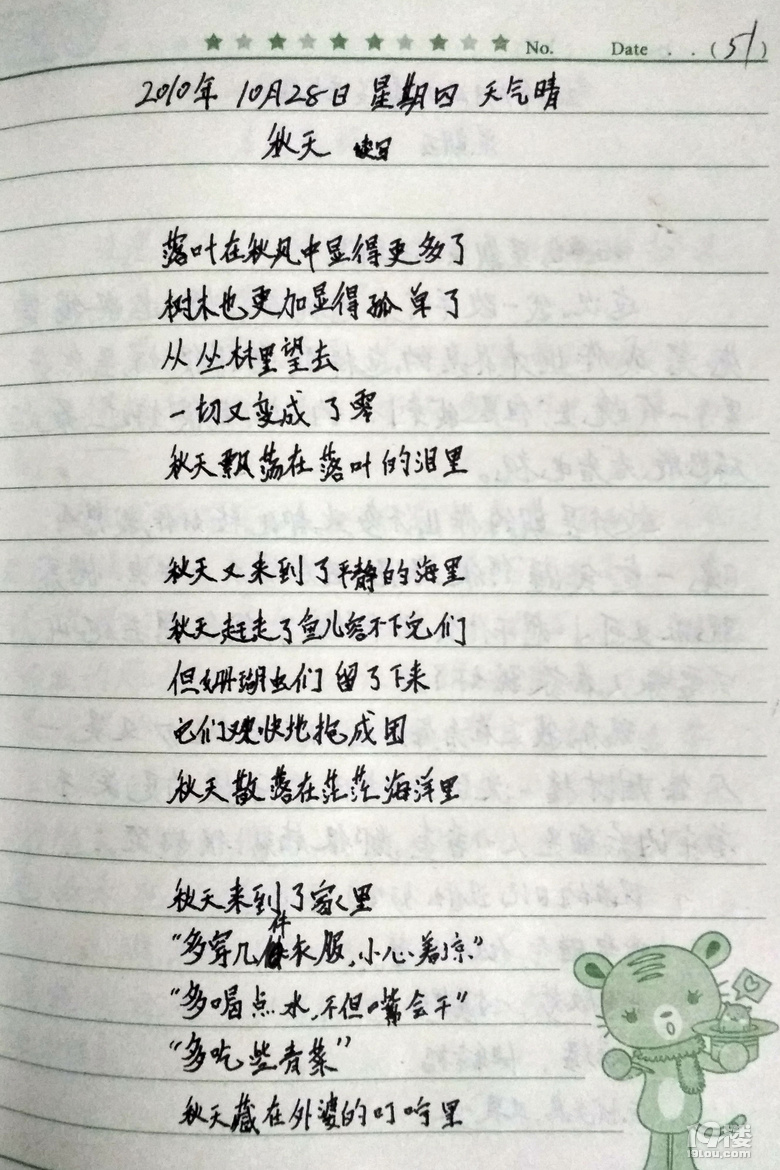 No. Date . . (51)
2010年 10月28日 星期四 天气晴
秋天
落叶在秋风中显得更多了
树木也更加显得孤单了
从丛林里望去
一切又变成了零
秋天飘荡在落叶的泪里
秋天又来到了平静的海里
秋天赶走了鱼儿容不下它们
但珊瑚虫们留了下来
它们欢快地抱成团
秋天散落在茫茫海洋里
秋天来到了家里
“多穿几件衣服,小心着凉”
“多喝点水,不但嘴会干”
“多吃些青菜”
秋天藏在外婆的叮咛里
19楼
19lou.com